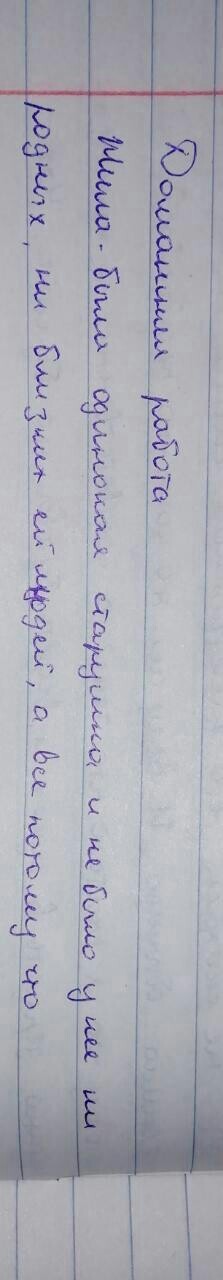 Домашняя работа
Жила-была одинокая старушка и не было у нее ни
родных, ни близких ей людей, а все потому что